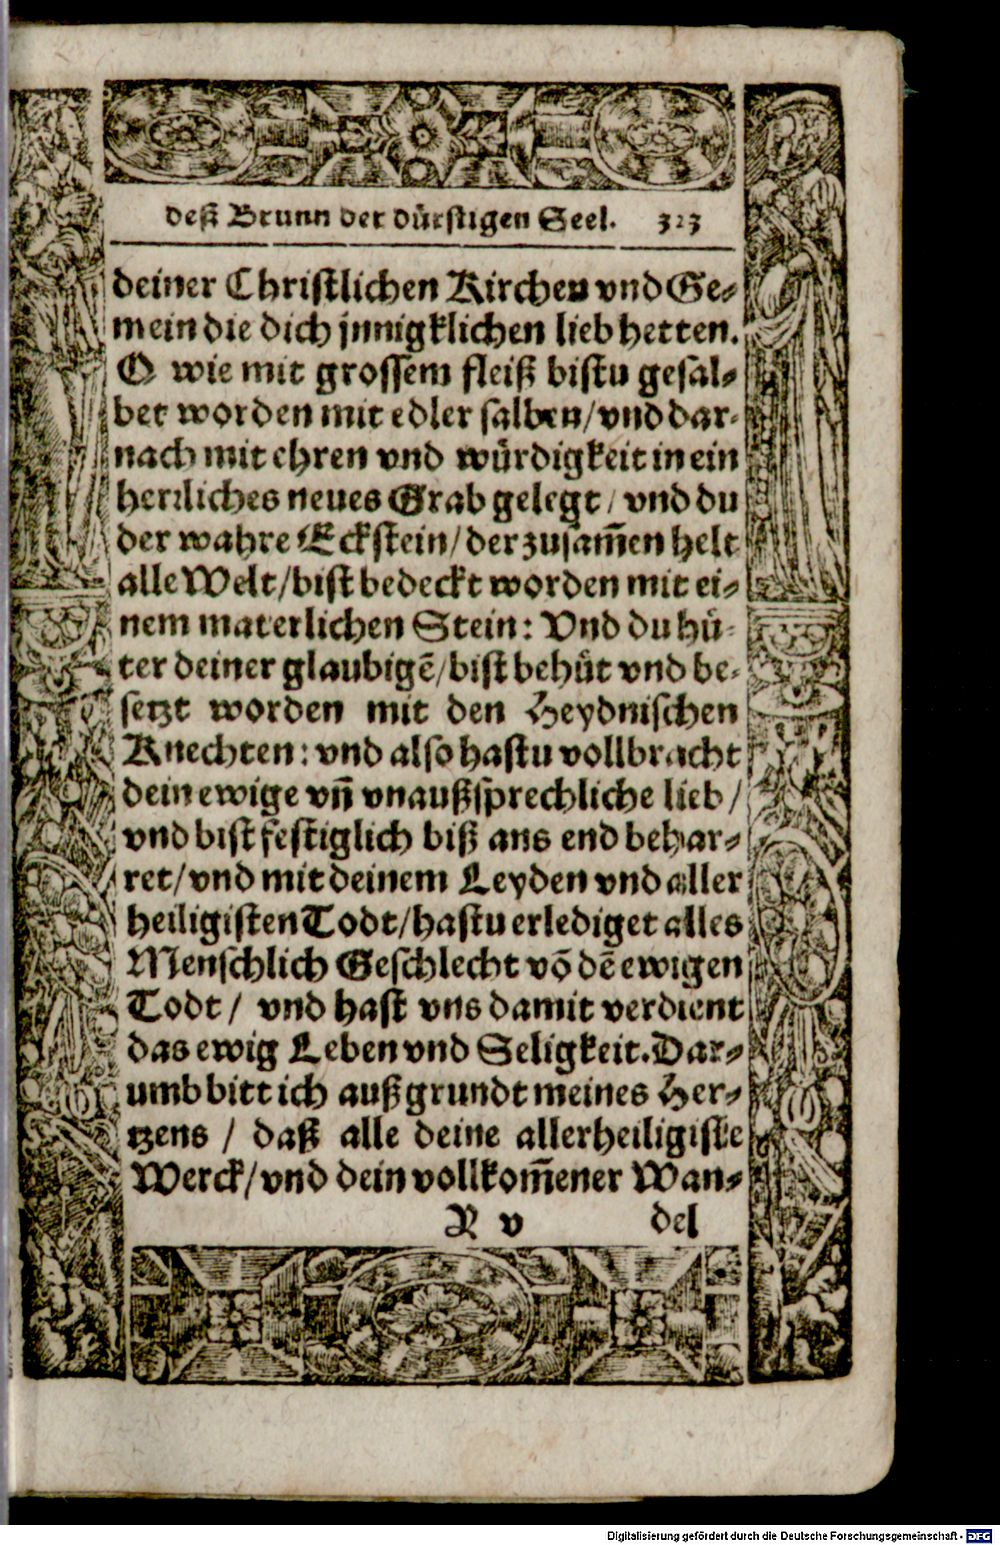 deß Brunn der dürstigen Seel. 323
deiner Christlichen Kirchen vnd Ge-
mein die dich jnnigklichen lieb hetten.
O wie mit grossem fleiß bistu gesal-
bet worden mit edler salben/ vnd dar-
nach mit ehren vnd würdigkeit in ein
herrliches neues Grab gelegt / vnd du
der wahre Eckstein/ der zusam̃en helt
alle Welt/ bist bedeckt worden mit ei-
nem materlichen Stein: Vnd du hü-
ter deiner glaubigẽ/ bist behüt vnd be-
setzt worden mit den Heydnischen
Knechten: vnd also hastu vollbracht
dein ewige vñ vnaußsprechliche lieb /
vnd bist festiglich biß ans end behar-
ret/ vnd mit deinem Leyden vnd aller
heiligisten Todt/ hastu erlediget alles
Menschlich Geschlecht võ dẽ ewigen
Todt / vnd hast vns damit verdient
das ewig Leben vnd Seligkeit. Dar-
umb bitt ich auß grundt meines Her-
tzens / daß alle deine allerheiligiste
Werck/ vnd dein vollkom̃ener Wan-
R v del
Digitalisierung gefördert durch die Deutsche Forschungsgemeinschaft - DFG